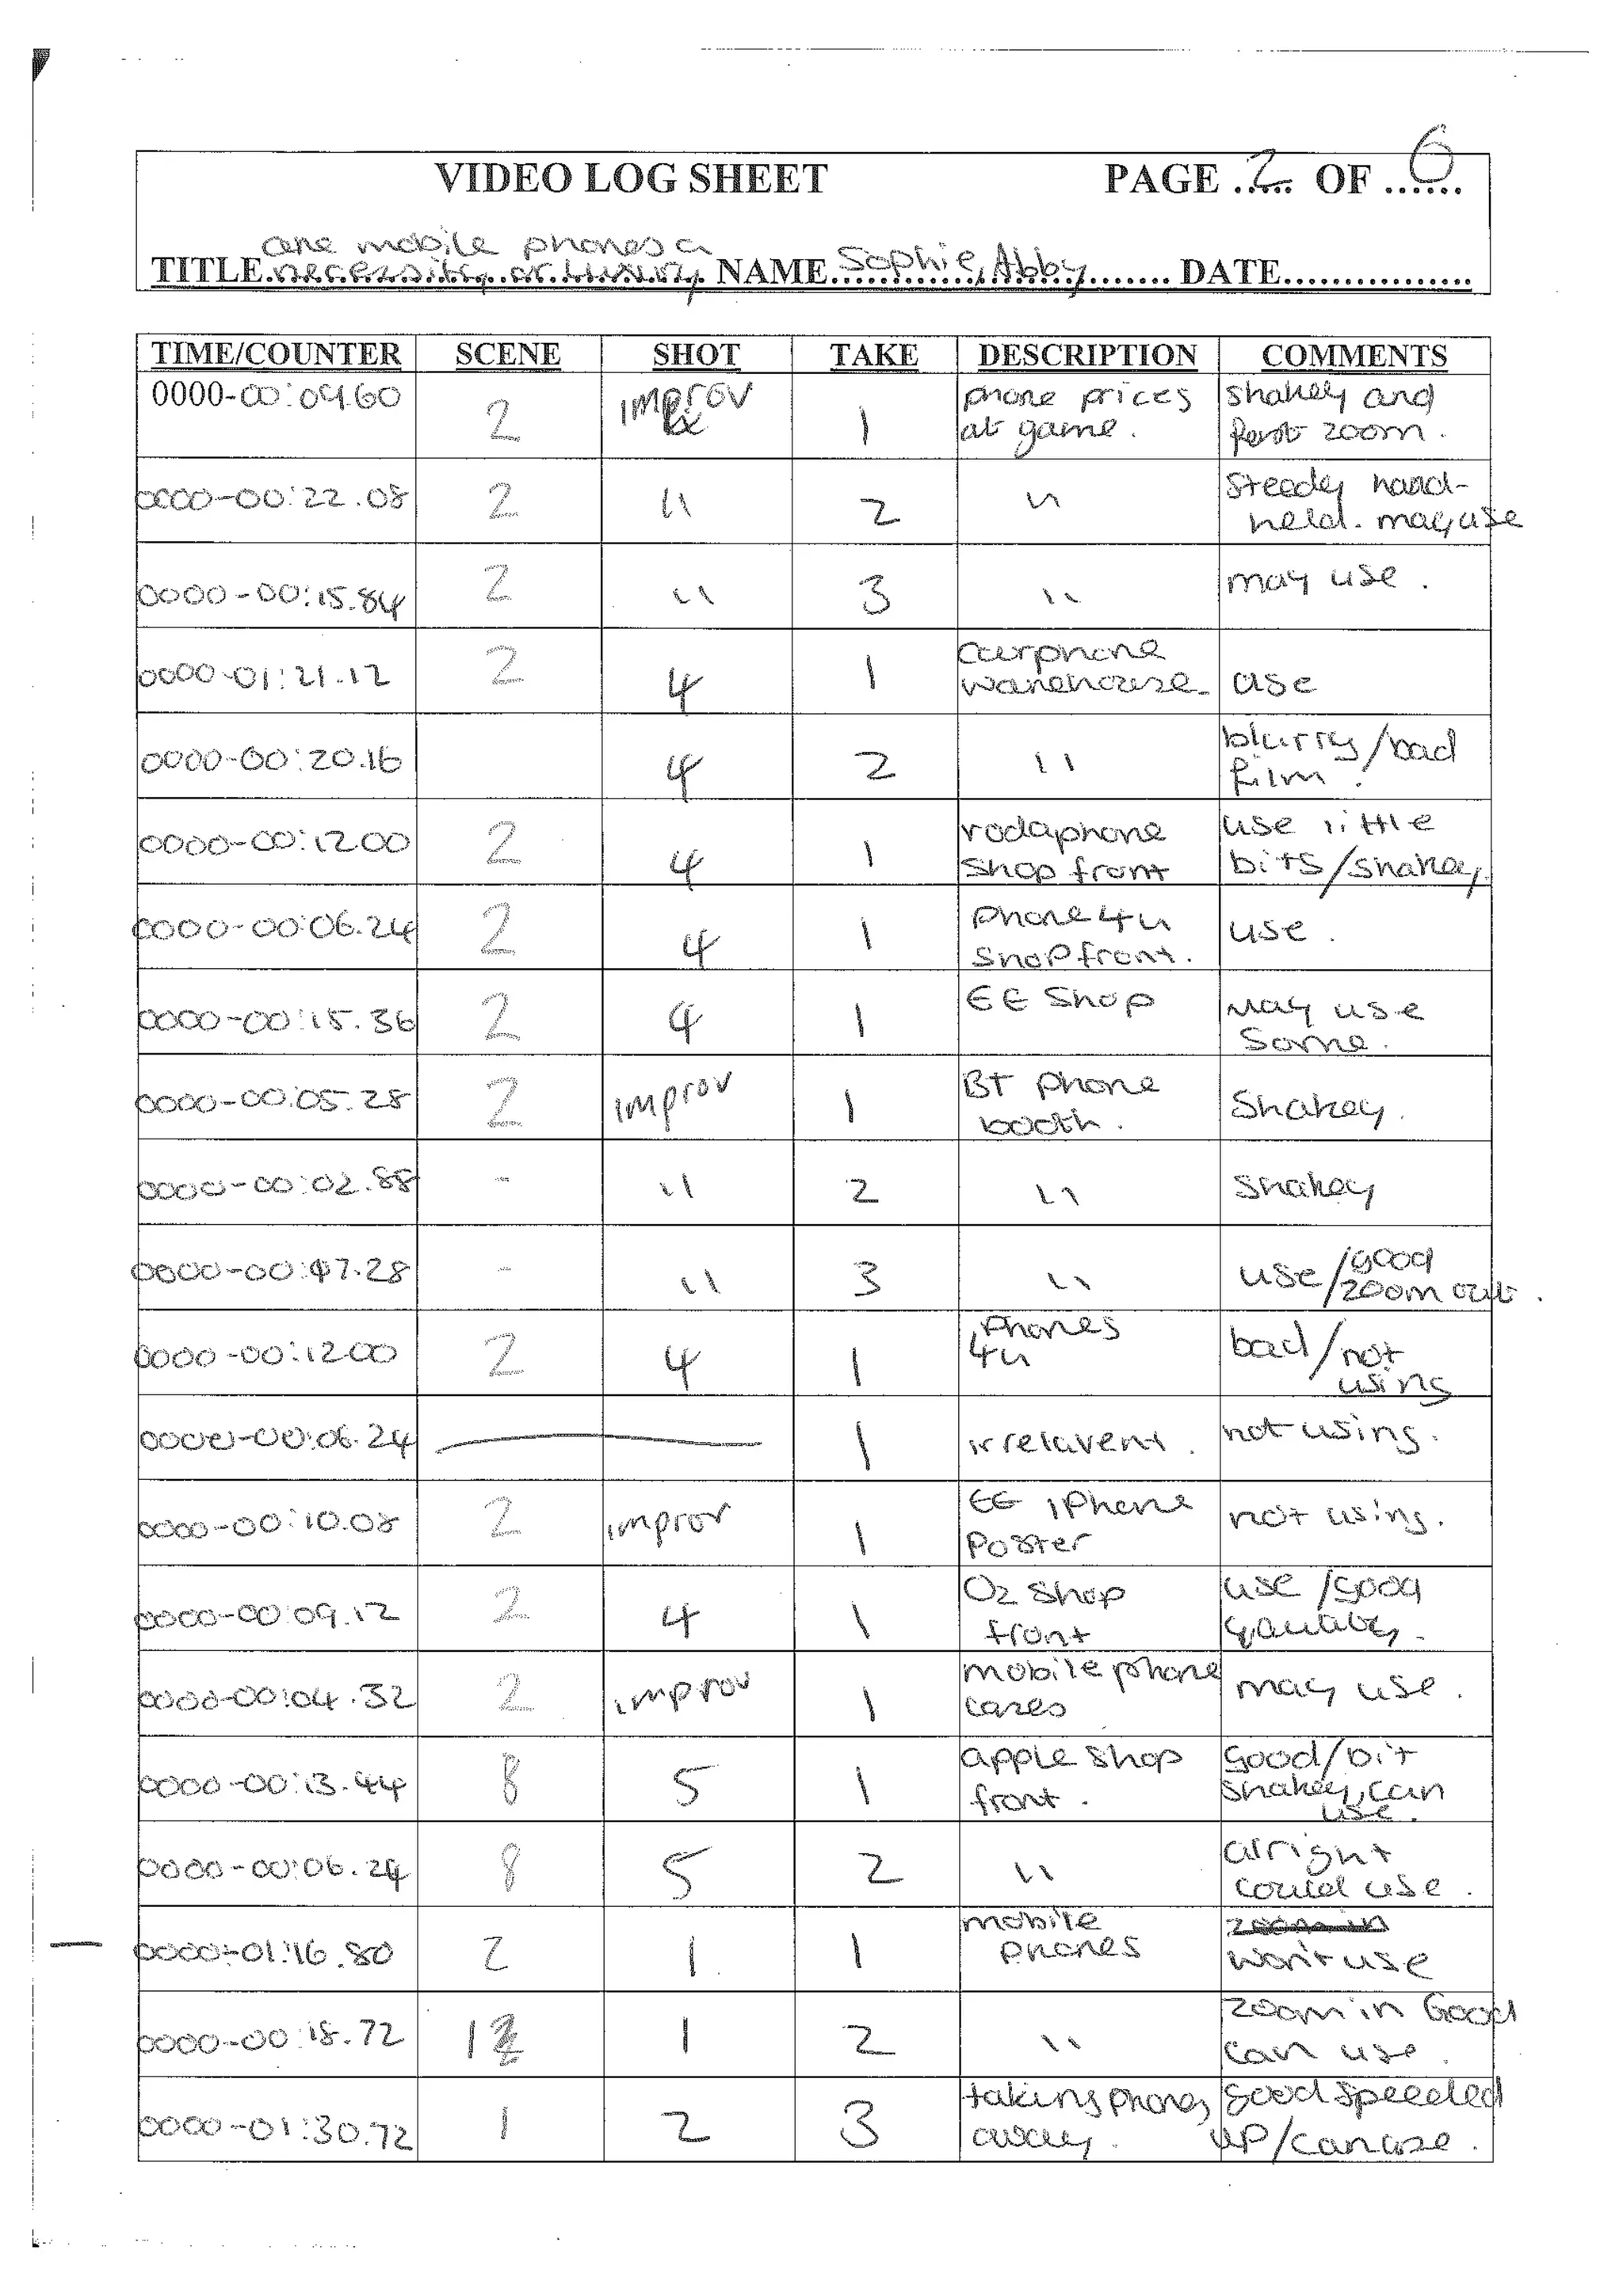 VIDEO LOG SHEET PAGE ..2.. OF ..6..
are mobile phones a
TITLE. necessity or luxury. NAME. Sophie, Abby ....... DATE................
TIME/COUNTER SCENE SHOT TAKE DESCRIPTION COMMENTS
0000-00:09.60 2 improv 1 phone prices at game. shakey and fast zoom.
0000-00:22.08 2 " 2 " Steady hand-held. may use
0000-00:15.84 2 " 3 " may use.
0000-01:21.12 2 4 1 carphone warehouse. use
0000-00:20.16 4 2 " blurry/bad film.
0000-00:12.00 2 4 1 vodaphone shop front use little bits/shakey.
0000-00:06.24 2 4 1 phone4u shopfront. use.
0000-00:15.36 2 4 1 EE Shop May use some.
0000-00:05.28 2 improv 1 BT phone booth. Shakey.
0000-00:02.88 - " 2 " Shakey
0000-00:47.28 - " 3 " use/good zoom out.
0000-00:12.00 2 4 1 Phones 4u bad/not using
0000-00:06.24 1 irrelavent. not using.
0000-00:10.08 2 improv 1 EE iPhone Poster not using.
0000-00:09.12 2 4 1 O2 shop front use/good
0000-00:04.32 2 improv 1 mobile phone cases may use.
0000-00:13.44 8 5 1 apple shop front. good/bit shakey, can use.
0000-00:06.24 8 5 2 " alright could use.
0000-01:16.80 2 1 1 mobile phones zoom in won't use
0000-00:18.72 1 1 2 " zoom in Good can use.
0000-01:30.72 1 2 3 taking phones away. good speeded up/can use.